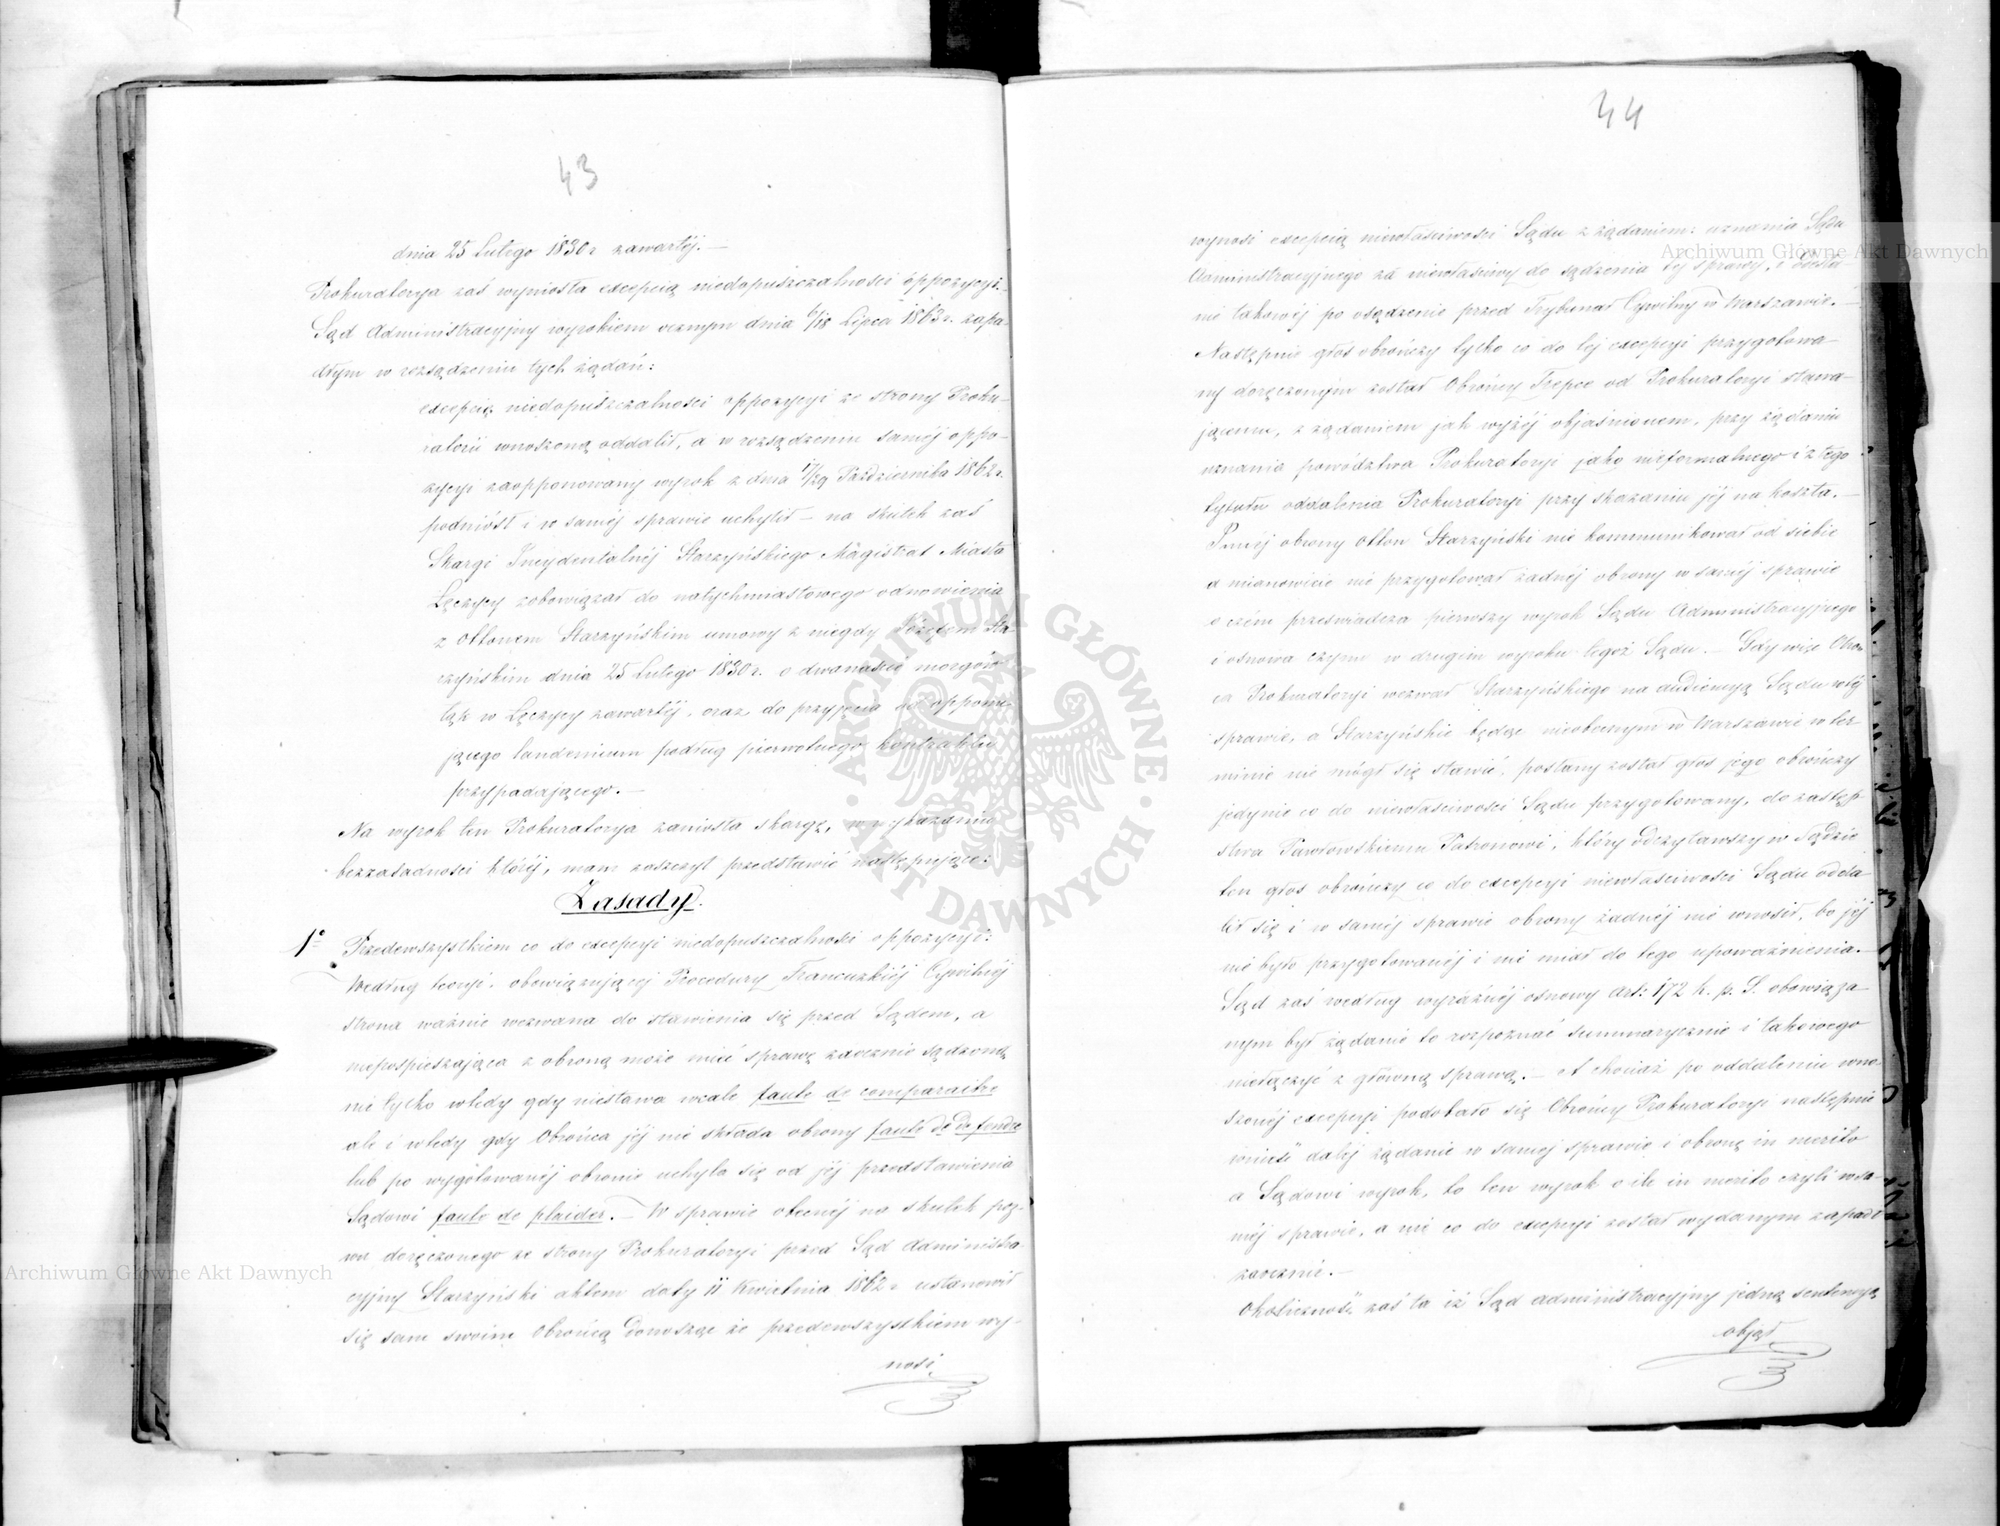 43
dnia 25 Lutego 1830 r zawartéj. —
Prokuratorya zaś wyniosła excepcią niedopuszczalności oppozycyi.
Sąd Administracyjny wyrokiem ocznym dnia 6/18 Lipca 1863 r. zapa-
dłym w rozsądzeniu tych żądań:
excepcią niedopuszczalności oppozycyi ze strony Proku-
ratorii wnoszoną oddalił, a w rozsądzeniu saméj oppo-
zycyi zaopponowany wyrok z dnia 17/29 Października 1862 r.
podniósł i w saméj sprawie uchylił — na skutek zaś
Skargi Incydentalnéj Starzyńskiego Magistrat Miasta
Łęczycy zobowiązał do natychmiastowego odnowienia
z Ottonem Starzyńskim umowy z niegdy Józefem Sta-
rzyńskim dnia 25 Lutego 1830 r. o dwanaście morgów
łąk w Łęczycy zawartéj, oraz do przyjęcia od opponu-
jącego laudemium podług pierwotnego kontraktu
przypadającego. —
Na wyrok ten Prokuratorya zaniosła skargę, w wykazaniu
bezzasadności któréj, mam zaszczyt przedstawić następujące:
Zasady.
1° Przedewszystkiem co do excepcyi niedopuszczalności oppozycyi:
Według teoryi, obowiązującej Procedury Francuzkiéj Cywilnéj
strona ważnie wezwana do stawienia się przed Sądem, a
niepospieszająca z obroną może mieć sprawę zaocznie sądzoną
nie tylko wtedy gdy niestawa wcale faute de comparaitre
ale i wtedy gdy Obrońca jéj nie składa obrony faute de defendre
lub po wygotowanéj obronie uchyla się od jéj przedstawienia
Sądowi faute de plaider. — W sprawie obecnéj na skutek poz-
wu doręczonego ze strony Prokuratoryi przed Sąd Administra-
cyjny Starzyński aktem daty 11 Kwietnia 1862 r ustanowił
się sam swoim Obrońcą donosząc że przedewszystkiem wy-
nosi
44
wynosi excepcią niewłaściwości Sądu z żądaniem: uznania Sądu
Administracyjnego za niewłaściwy do sądzenia téj sprawy, i
nie takowéj po osądzenie przed Trybunał Cywilny w Warszawie. —
Następnie głos obrończy tylko co do téj excepcyi przygotowa-
ny doręczonym został Obrońcy Trepce od Prokuratoryi stawa-
jącemu, z żądaniem jak wyżéj objaśnionem, przy żądaniu
uznania powództwa Prokuratoryi jako nieformalnego i z tego
tytułu oddalenia Prokuratoryi przy skazaniu jéj na koszta. —
Innéj obrony Otton Starzyński nie kommunikował od siebie
a mianowicie nie przygotował żadnéj obrony w saméj sprawie
o czém przeświadcza pierwszy wyrok Sądu Administracyjnego
i osnowa czynu w drugim wyroku tegoż Sądu. — Gdy więc Obroń-
ca Prokuratoryi wezwał Starzyńskiego na audiencyą Sądu w téj
sprawie, a Starzyński będąc nieobecnym w Warszawie w ter-
minie nie mógł się stawić, posłany został głos jego obrończy
jedynie co do niewłaściwości Sądu przygotowany, do zastęp-
stwa Pawłowskiemu Patronowi, który odczytawszy w Sądzie
ten głos obrończy co do excepcyi niewłaściwości Sądu odda-
lił się i w saméj sprawie obrony żadnéj nie wnosił, bo jéj
nie było przygotowanéj i nie miał do tego upoważnienia. —
Sąd zaś według wyraźnéj osnowy art: 172 k. p. S. obowiąza-
nym był żądanie to rozpoznać summarycznie i takowego
niełączyć z główną sprawą. — A chociaż po oddaleniu wno-
szonéj excepcyi podobało się Obrońcy Prokuratoryi następnie
wnieść daléj żądanie w saméj sprawie i obronę in merito
a Sądowi wyrok, to ten wyrok o ile in merito czyli w sa-
méj sprawie, a nie co do excepcyi został wydanym zapadł
zaocznie. —
Okoliczność zaś ta iż Sąd administracyjny jedną sentencyą
objął
Archiwum Główne Akt Dawnych
Archiwum Główne Akt Dawnych
ARCHIWUM GŁÓWNE
AKT DAWNYCH